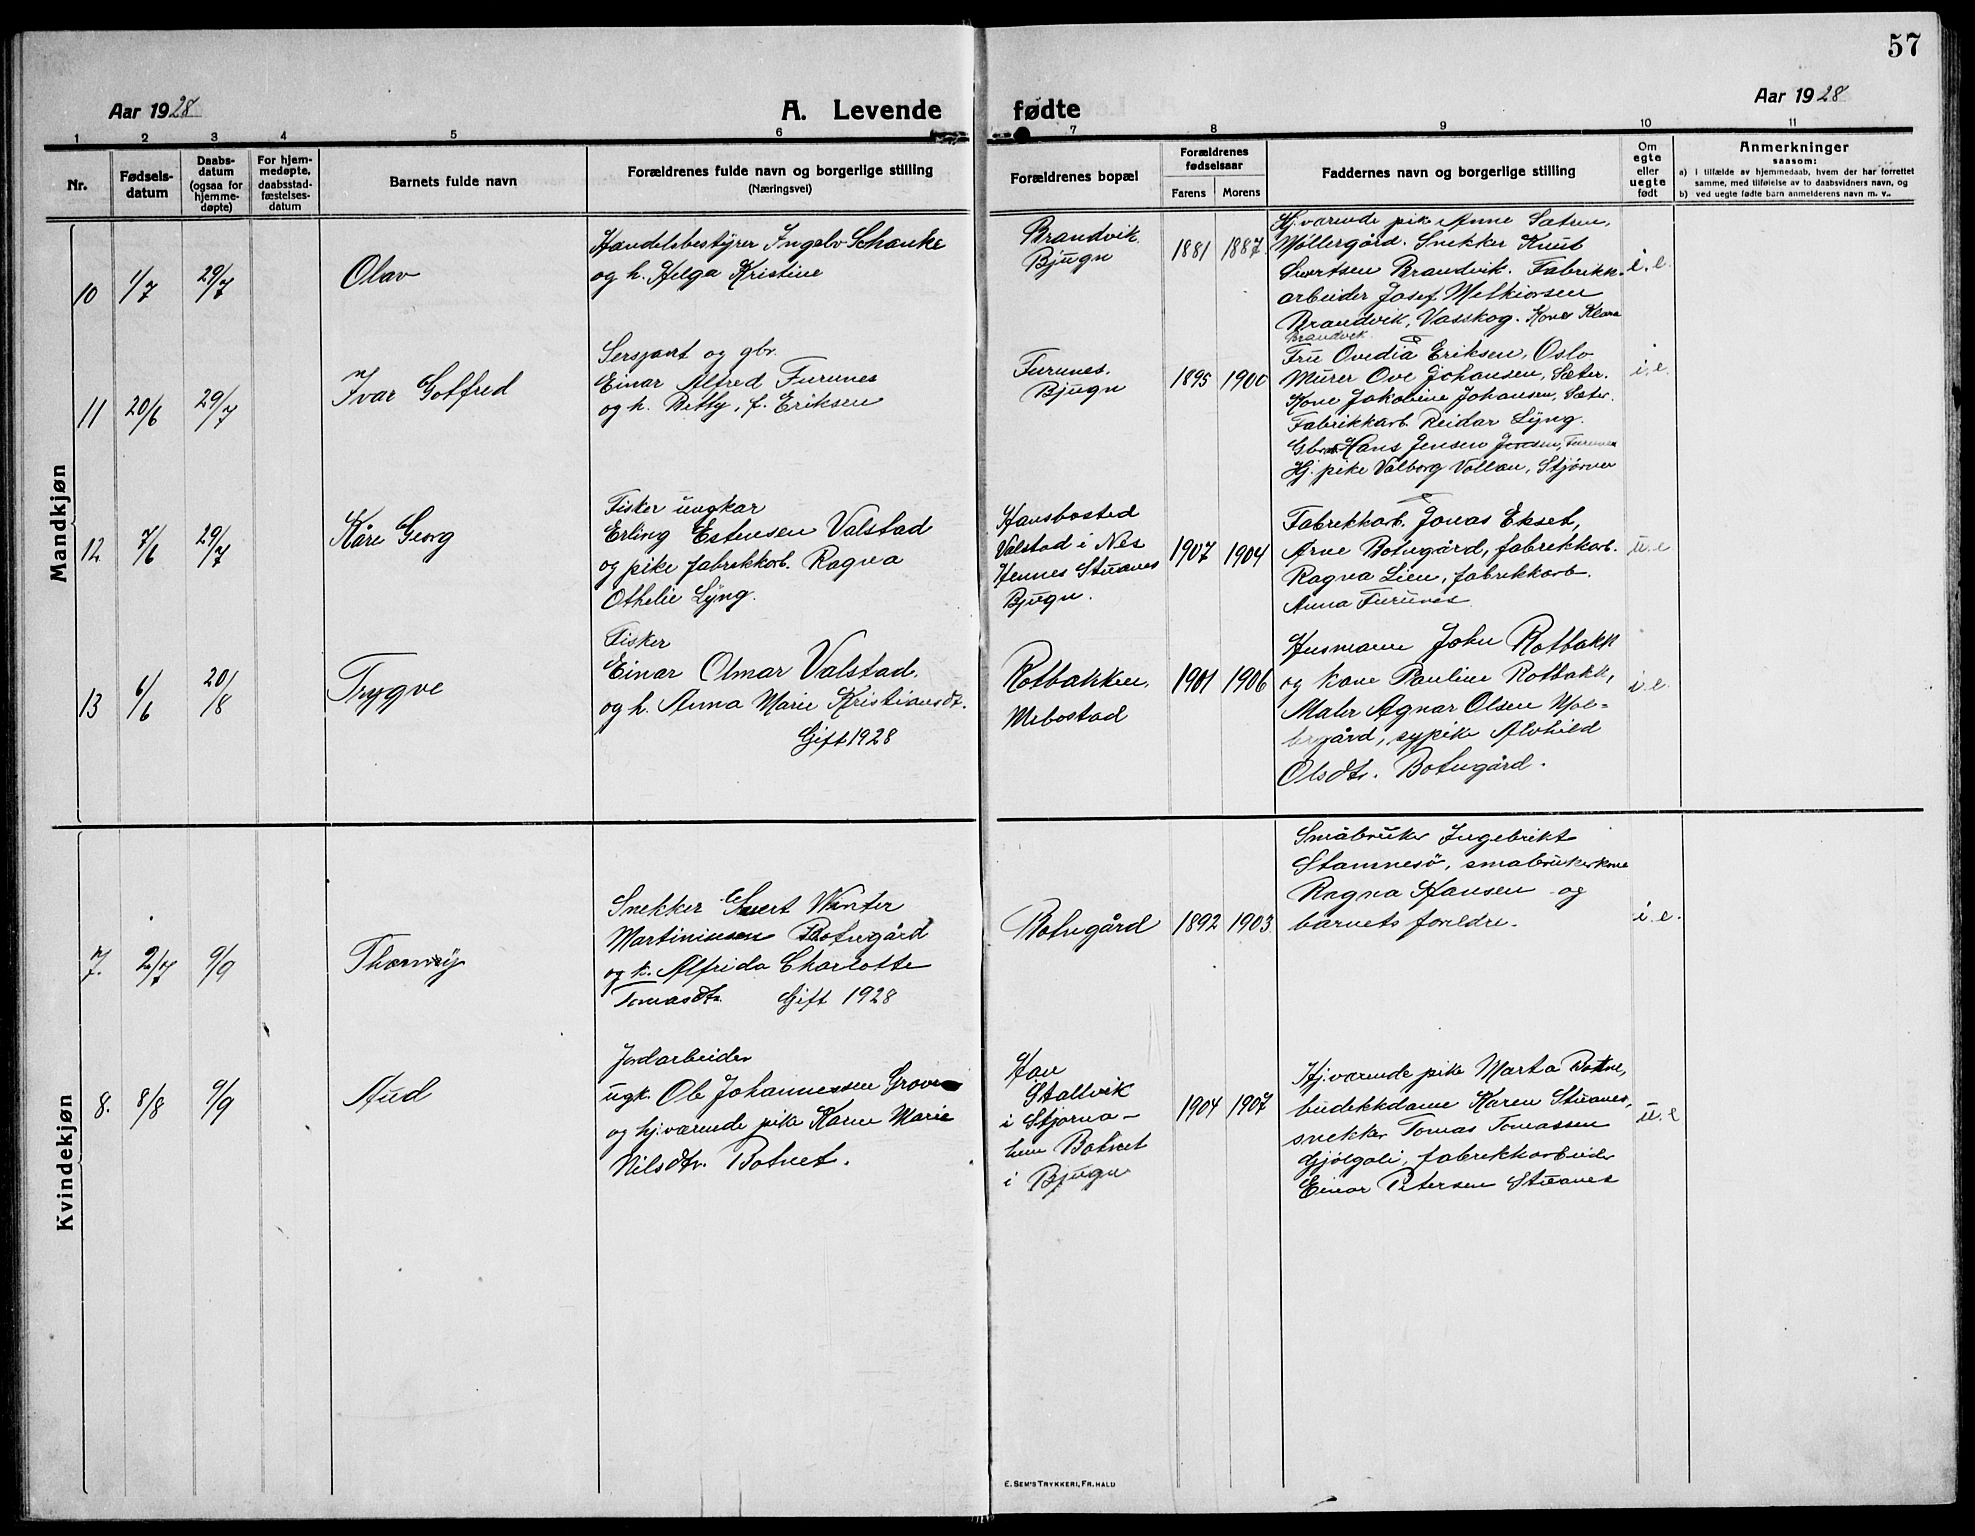 57
Aar 1928
A. Levende
fødte
Aar 1928
1 2 3 4 5 6 7 8 9 10 11
Nr.
Fødsels-
datum
Daabs-
datum
(ogsaa for
hjemme-
døpte)
For hjem-
medøpte,
daabsstad-
fæstelses-
datum
Barnets fulde navn
Forældrenes fulde navn og borgerlige stilling
(Næringsvei)
Forældrenes bopæl
Forældrenes
fødselsaar
Farens Morens
Faddernes navn og borgerlige stilling
Om
egte
eller
uegte
født
Anmerkninger
saasom:
a) i tilfælde av hjemmedaab, hvem der har forrettet
samme, med tilføielse av to daabsvidners navn, og
b) ved uegte fødte barn anmelderens navn m. v..
Mandkjøn
10 1/7 29/7
Olav
Handelsbestyrer Ingolv Schanke
og h. Helga Kristine
Brandvik.
Bjugn
1881 1887.
Hj.værende pike Anne Sætren,
Møllergård. Snekker Knut
Sivertsen Brandvik. Fabrikk-
arbeider Josef Melkiorsen
Brandvik, Vasskog. Kone Klara
Brandvik
i. e.
11 20/6 29/7
Ivar Gotfred
Sersjant og gbr.
Einar Alfred Furunes
og h. Betty, f. Eriksen
Furunes.
Bjugn
1895 1900
Fru Ovedia Eriksen, Oslo
Murer Ove Johansen, Sæter.
Kone Jakobine Johansen, Sæter.
Fabrikkarb. Reidar Lyng.
Gbr. Hans Jensen Jensen, Furunes
Hj. pike Valborg Vollan, Stjørna
i. e.
12 7/6 29/7
Kåre Georg
Fisker ungkar
Erling Estensen Valstad
og pike fabrekkarb. Ragna
Othelie Lyng.
Hansbosted
Valstad i Nes
Hennes Stuanes
Bjugn.
1907 1904
Fabrekkarb. Jonas Ekset,
Arne Botngård, fabrekkarb.
Ragna Lien, fabrekkarb.
Anna Furunes
u. e
13 6/6 20/8
Trygve
Fisker
Einar Olmar Valstad.
og h. Anna Marie Kristiansdt.
Gift 1928
Rotbakken.
Mebostad
1901 1906
Husmann John Rotbakk
og kone Pauline Rotbakk,
Maler Agnar Olsen
gård, sypike Alvhild
Olsdtr. Botngård.
i. e.
Kvindekjøn
7. 2/7 9/9
Snekker Sivert Winter
Martiniusen Botngård
og k. Alfrida Charlotte
Tomasdtr. Gift 1928
Botngård
1892 1903
Småbruker Ingebrikt
Stamnesö, småbrukerkone
Ragna Hansen og
barnets foreldre.
i. e.
8. 8/8 9/9
Aud
Jordarbeider
ugk. Ole Johannessen Groven
og hj.værende pike Karen Marie
Nilsdtr. Botnet.
Han
Stallvik
i Stjørna -
hun Botnet
i Bjugn
1904 1907
Hj.værende pike Marta Botne,
budekkdame Karen Stuanes,
snekker Tomas Tomassen
Gjölgali, fabrekkarbeider
Einar Petersen Stuanes
u. e
E. SEM'S TRYKKERI, FR.HALD